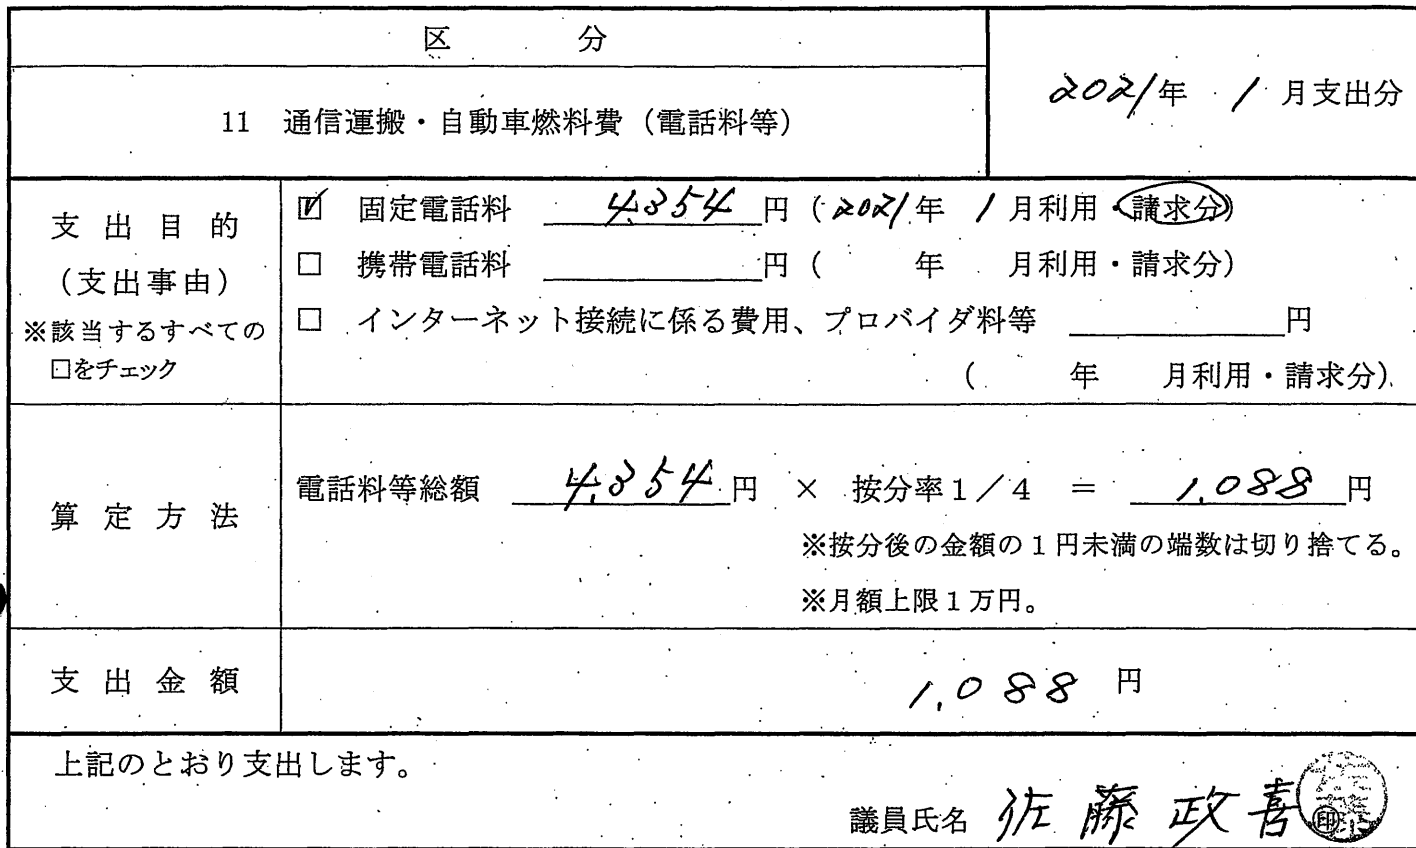 区 分
11 通信運搬・自動車燃料費（電話料等）
2021年 1月支出分
支出目的
（支出事由）
※該当するすべての
□をチェック
☑ 固定電話料 4,354円（2021年 1月利用・請求分）
□ 携帯電話料 円（ 年 月利用・請求分）
□ インターネット接続に係る費用、プロバイダ料等 円
（ 年 月利用・請求分）
算定方法
電話料等総額 4,354円 × 按分率1／4 ＝ 1,088円
※按分後の金額の1円未満の端数は切り捨てる。
※月額上限1万円。
支出金額
1,088 円
上記のとおり支出します。
議員氏名 佐藤政喜 ㊞